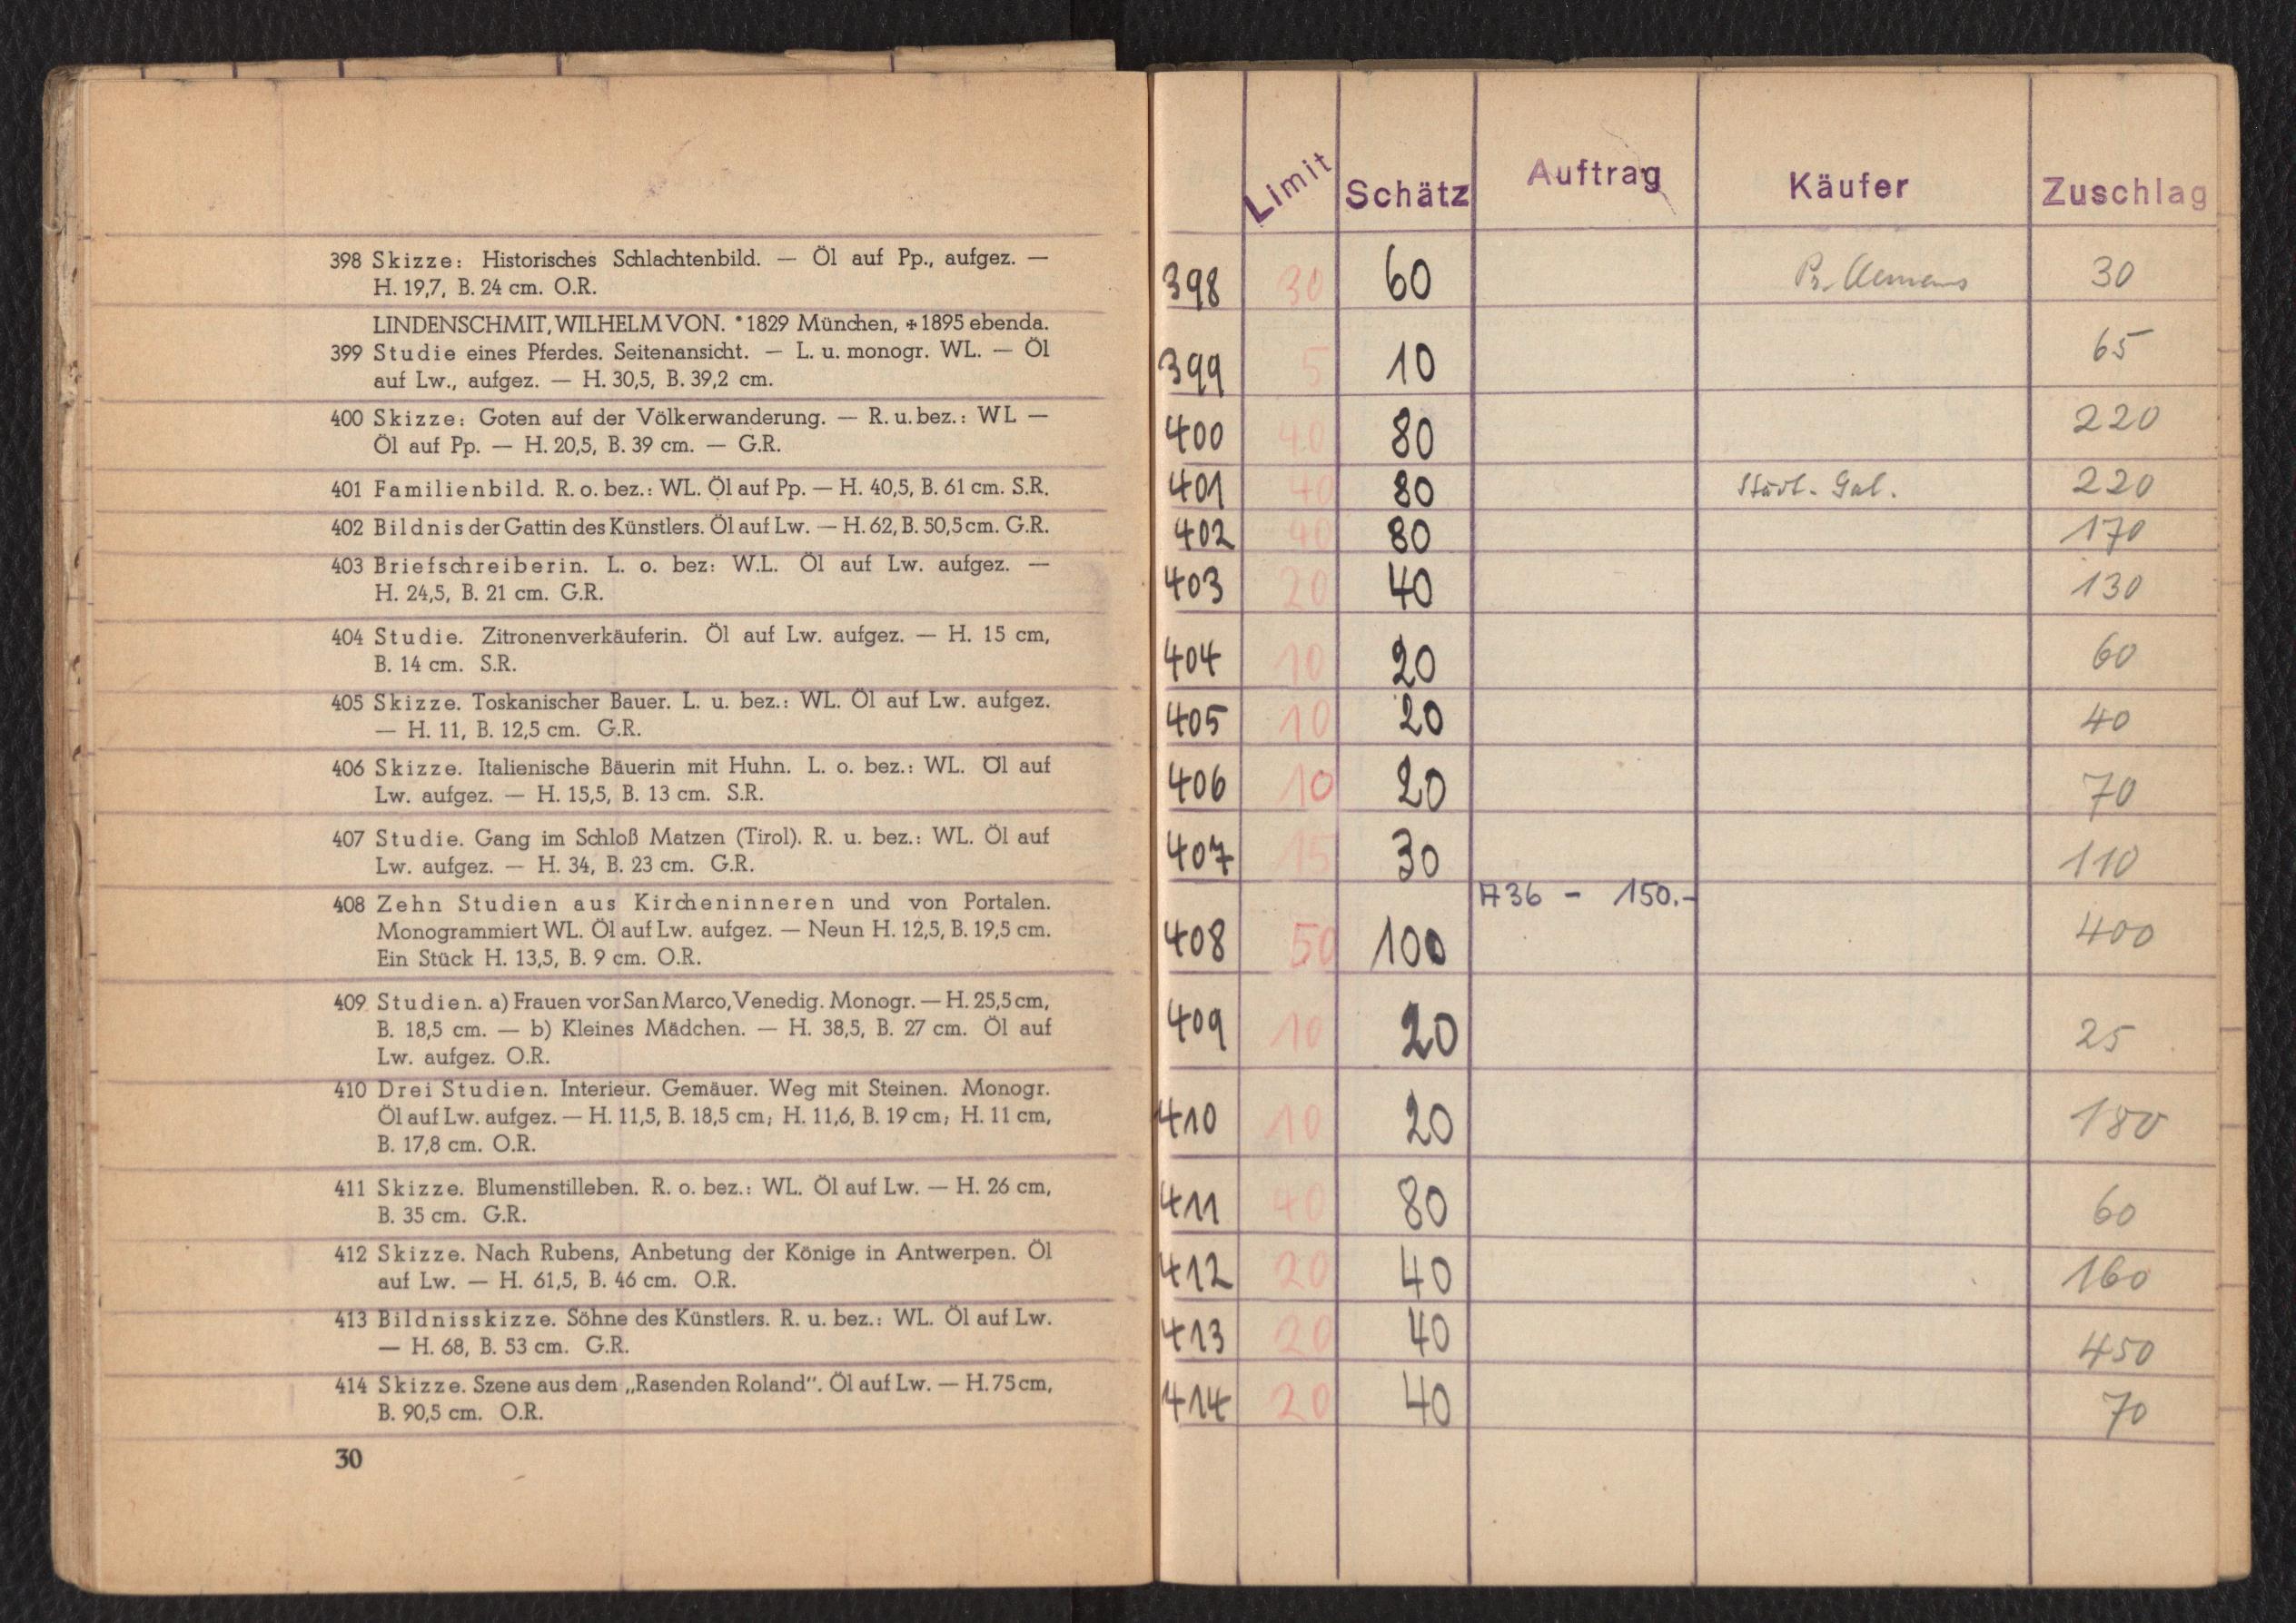 398 Skizze: Historisches Schlachtenbild. — Öl auf Pp., aufgez. —
H. 19,7, B. 24 cm. O.R.
LINDENSCHMIT, WILHELM VON. * 1829 München, ✠ 1895 ebenda.
399 Studie eines Pferdes. Seitenansicht. — L. u. monogr. WL. — Öl
auf Lw., aufgez. — H. 30,5, B. 39,2 cm.
400 Skizze: Goten auf der Völkerwanderung. — R. u. bez.: WL —
Öl auf Pp. — H. 20,5, B. 39 cm. — G.R.
401 Familienbild. R. o. bez.: WL. Öl auf Pp. — H. 40,5, B. 61 cm. S.R.
402 Bildnis der Gattin des Künstlers. Öl auf Lw. — H. 62, B. 50,5 cm. G.R.
403 Briefschreiberin. L. o. bez: W.L. Öl auf Lw. aufgez. —
H. 24,5, B. 21 cm. G.R.
404 Studie. Zitronenverkäuferin. Öl auf Lw. aufgez. — H. 15 cm,
B. 14 cm. S.R.
405 Skizze. Toskanischer Bauer. L. u. bez.: WL. Öl auf Lw. aufgez.
— H. 11, B. 12,5 cm. G.R.
406 Skizze. Italienische Bäuerin mit Huhn. L. o. bez.: WL. Öl auf
Lw. aufgez. — H. 15,5, B. 13 cm. S.R.
407 Studie. Gang im Schloß Matzen (Tirol). R. u. bez.: WL. Öl auf
Lw. aufgez. — H. 34, B. 23 cm. G.R.
408 Zehn Studien aus Kircheninneren und von Portalen.
Monogrammiert WL. Öl auf Lw. aufgez. — Neun H. 12,5, B. 19,5 cm.
Ein Stück H. 13,5, B. 9 cm. O.R.
409 Studien. a) Frauen vor San Marco, Venedig. Monogr. — H. 25,5 cm,
B. 18,5 cm. — b) Kleines Mädchen. — H. 38,5, B. 27 cm. Öl auf
Lw. aufgez. O.R.
410 Drei Studien. Interieur. Gemäuer. Weg mit Steinen. Monogr.
Öl auf Lw. aufgez. — H. 11,5, B. 18,5 cm; H. 11,6, B. 19 cm; H. 11 cm,
B. 17,8 cm. O.R.
411 Skizze. Blumenstilleben. R. o. bez.: WL. Öl auf Lw. — H. 26 cm,
B. 35 cm. G.R.
412 Skizze. Nach Rubens, Anbetung der Könige in Antwerpen. Öl
auf Lw. — H. 61,5, B. 46 cm. O.R.
413 Bildnisskizze. Söhne des Künstlers. R. u. bez.: WL. Öl auf Lw.
— H. 68, B. 53 cm. G.R.
414 Skizze. Szene aus dem „Rasenden Roland“. Öl auf Lw. — H. 75 cm,
B. 90,5 cm. O.R.
30
Limit Schätz Auftrag Käufer Zuschlag
398 30 60 30
399 5 10 65
400 40 80 220
401 40 80 Städt. Gal. 220
402 40 80 170
403 20 40 130
404 10 20 60
405 10 20 40
406 10 20 70
407 15 30 110
A36 - 150.-
408 50 100 400
409 10 20 25
410 10 20 180
411 40 80 60
412 20 40 160
413 20 40 450
414 20 40 70